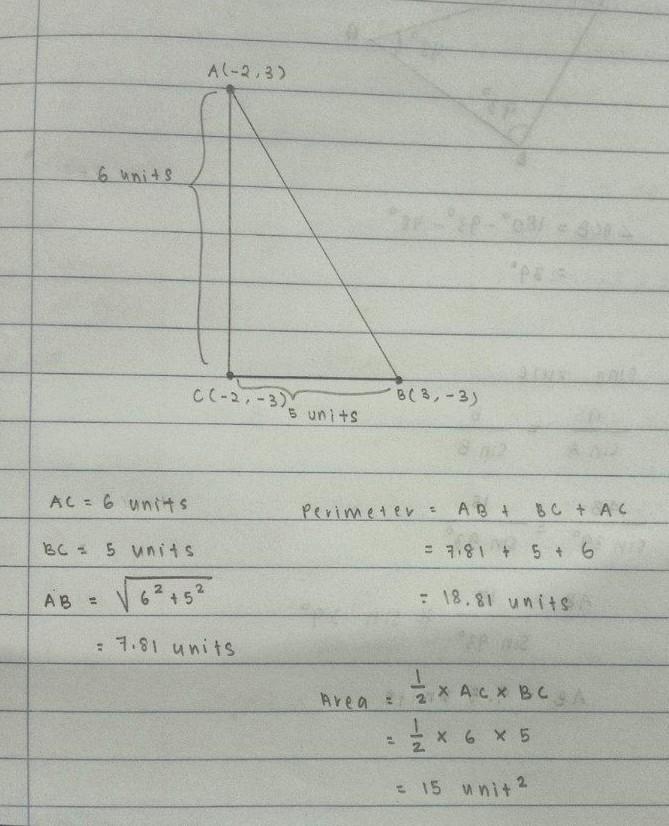 A(-2,3)
6 units
C(-2,-3)
B(3,-3)
5 units
AC = 6 units
BC = 5 units
AB = √(6² + 5²)
= 7.81 units
Perimeter = AB + BC + AC
= 7.81 + 5 + 6
= 18.81 units
Area = 1/2 × AC × BC
= 1/2 × 6 × 5
= 15 unit²